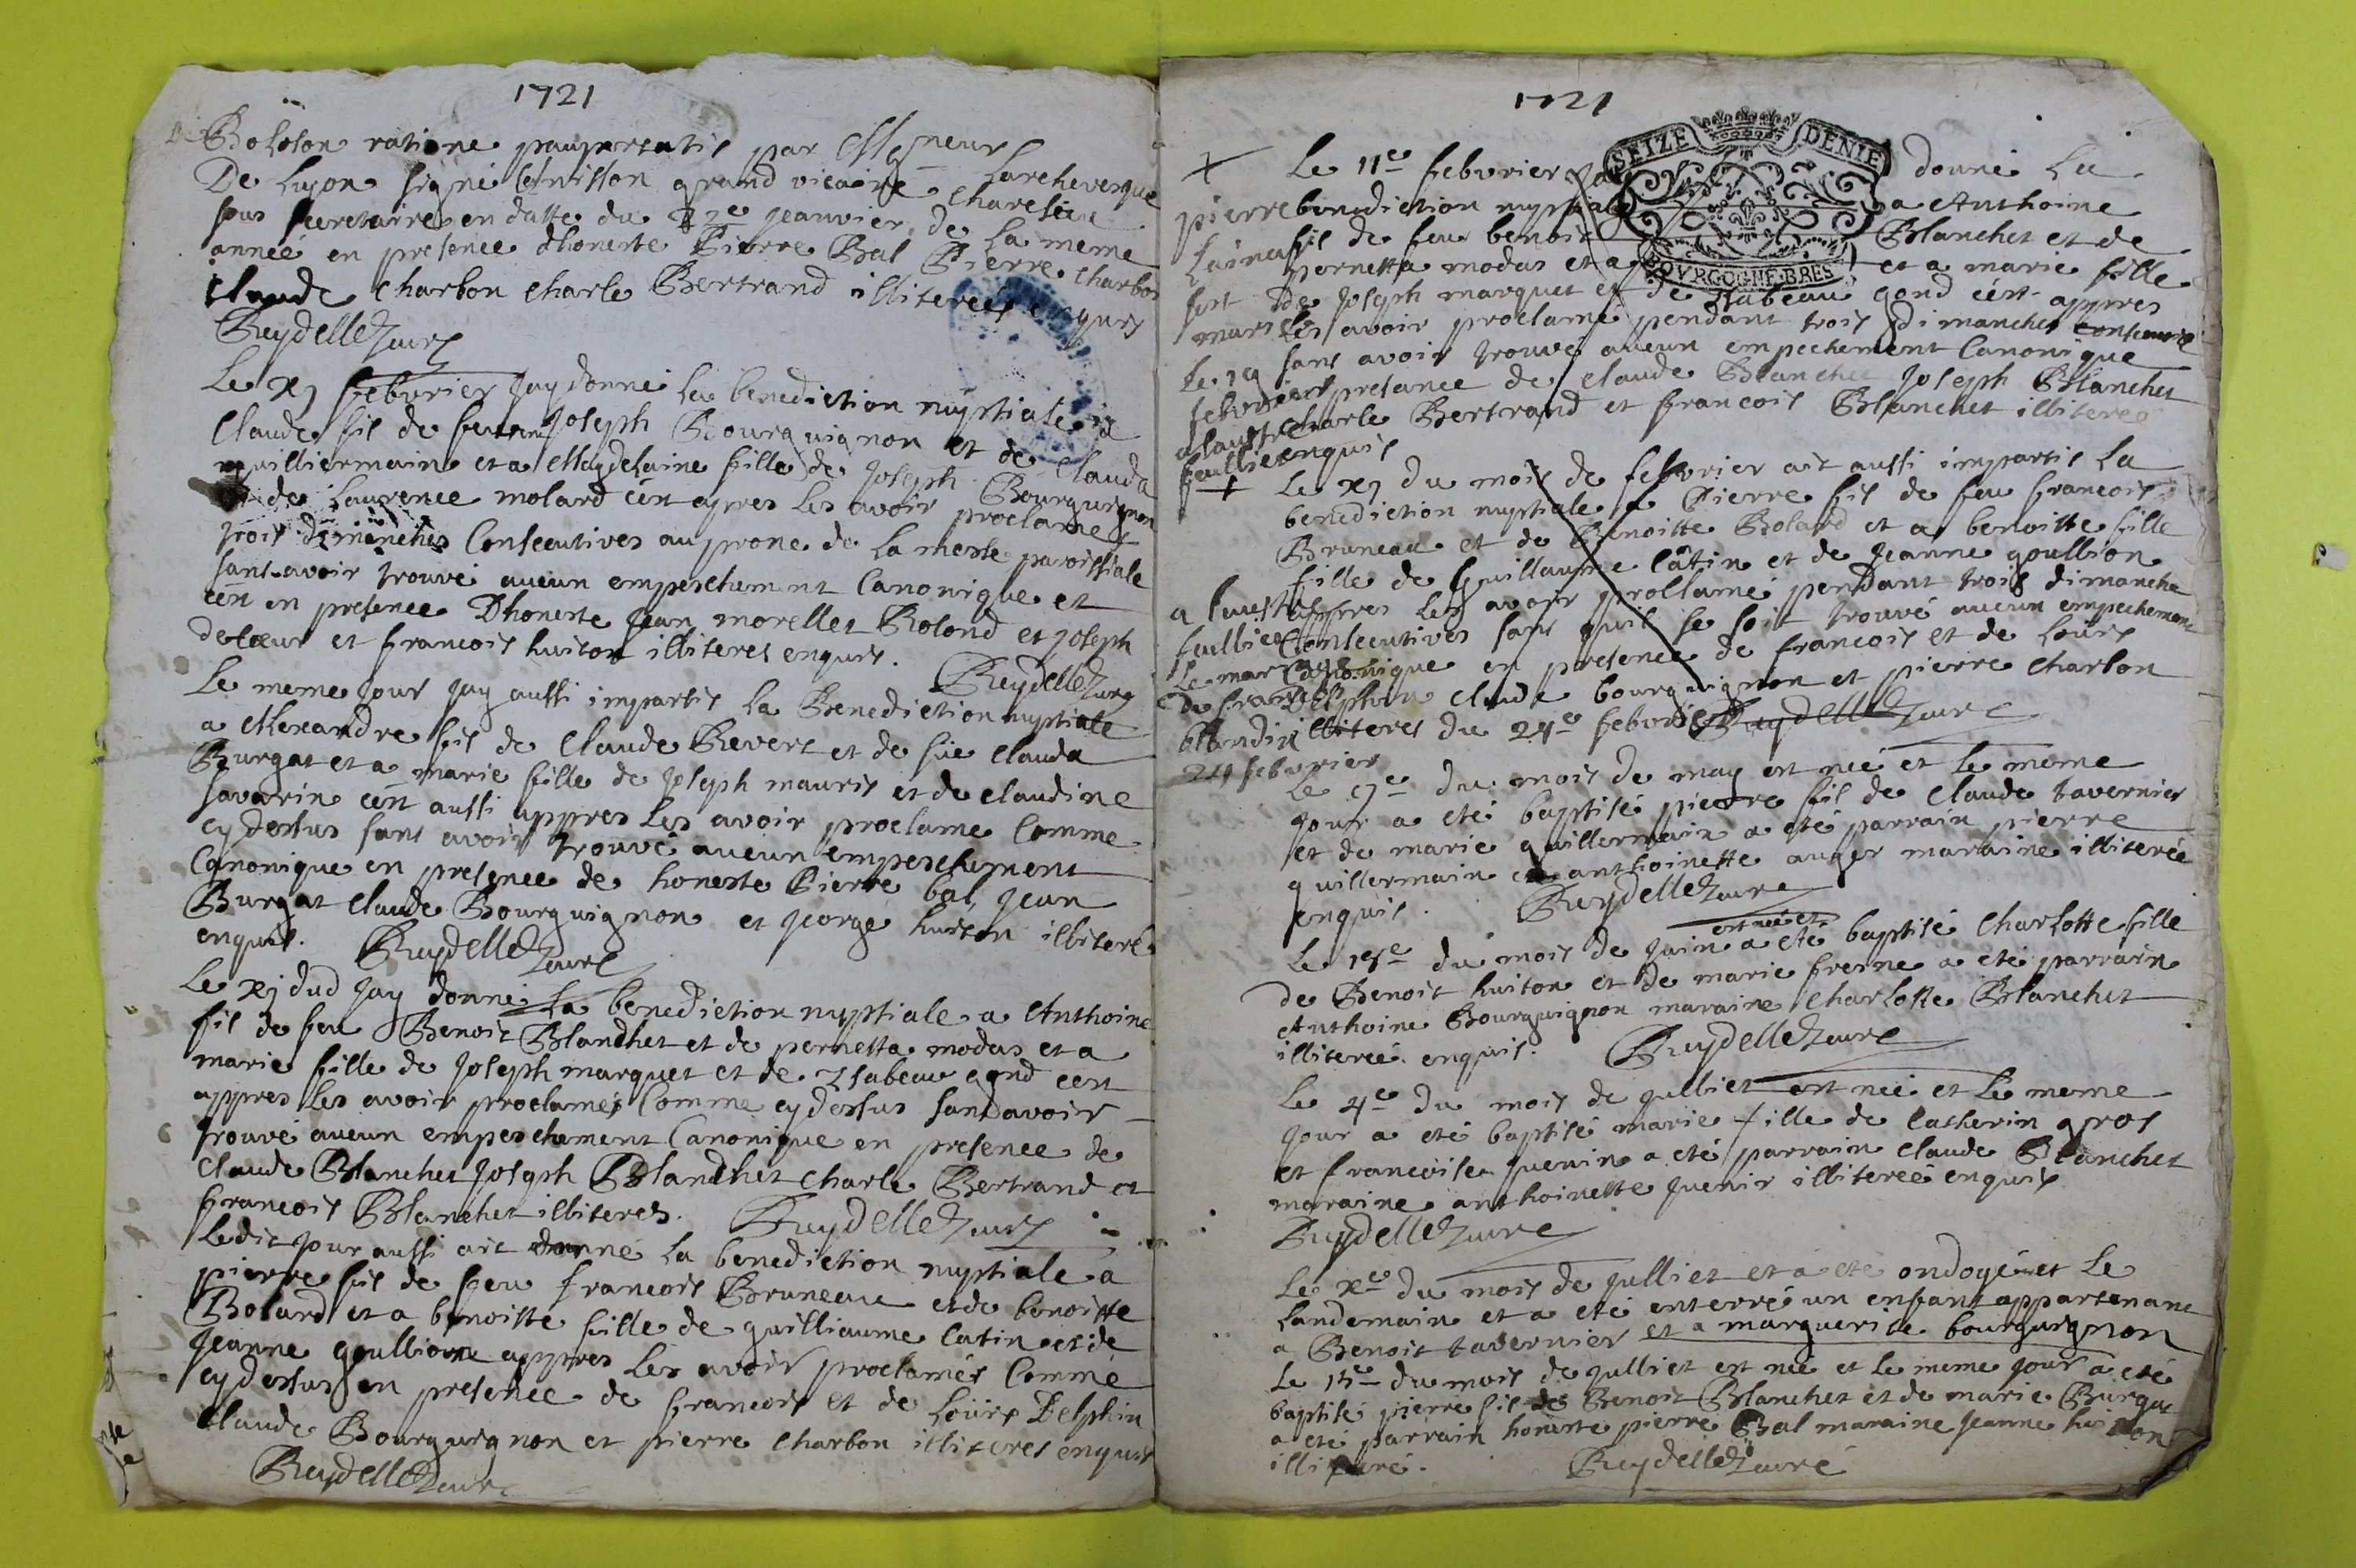 1721
Boloson ratione paupertatis par Mgneur Larchevesque
De Lyon signé Canisson grand vicaire
sous secretaire en datte du 22e Jeanvier de la meme
année en presence dhoneste Pierre Bal Pierre Charbon
Claude Charbon Charle Bertrand illiterés enquis
Reydellet Curé
Le xj febvrier Jay donné la benediction nuptiale a
Claude fil de feu Joseph Bourguignon et de Clauda
guilliermain et a Magdelaine fille de Joseph Bourguignon
et de Laurence molard cest apres les avoir proclamés
trois dimenches Consecutives au prone de la messe paroissiale
sans avoir trouvé aucun empeschement Canonique et
cest en presence Dhoneste Jean morellet Rolond et Joseph
delœur et francois huiton illiteres enquis. Reydellet Curé
Le meme Jour Jay aussi impartis la Benediction nuptiale
a Alexandre fil de Claude Revert et de füe Clauda
Burgat et a marie fille de Joseph mauris et de Claudine
savarin cest aussi appres les avoir proclame Comme
cydessus sans avoir trouvé aucun empeschement
Canonique en presence de honeste Pierre bal Jean
Burgat Claude Bourguignon et Jeorge huiton illiteré
enquis. Reydellet Curé
Le xj dud Jay donné la benediction nuptiale a Anthoine
fil de feu Benoit Blanchet et de pernetta modas et a
marie fille de Joseph marquet et de Isabeau gond cest
appres les avoir proclamés Comme cydessus sans avoir
trouvé aucun empeschement Canonique en presence de
Claude Blanchet Joseph Blanchet Charle Bertrand et
francois Blanchet illiteres. Reydellet Curé
Ledit Jour aussi ait donné la benediction nuptiale a
pierre fil de feu francois Bruneau et de benoitte
Bolard et a benoitte fille de guilliaume Catin et de
Jeanne goullione appres les avoir proclamés Comme
cydessus en presence de francois et de Loüis Delphin
Claude Bourguignon et pierre Charbon illiteres enquis
Reydellet Curé
1721
SEIZE DENIE
BOVRGOGNE·BRES
Le 11e febvrier Jay donné La
benediction nuptiale a Anthoine
fil de feu benoit Blanchet et de
pernetta modas et a et a marie fille
de Joseph marquet et de Isabeau gond cest appres
les avoir proclamé pendant trois dimanches
sans avoir trouvé aucun empechement Canonique
en presance de Claude Blanchet Joseph Blanchet
Charle Bertrand et francois Blanchet illiteres
enquis
pierre
Lainé
mars
Le 19
febvrier
a lautre
feullie
Le xj du mois de febvrier ait aussi impartis la
benediction nuptiale a Pierre fil de feu francois
Bruneau et de Benoitte Bolard et a benoitte fille
fille de Guillaume Câtin et de Jeanne goullion
appres les avoir prollamé pendant trois dimanche
Consecutives sans quil se soit trouvé aucun empechement
Canonique en presence de francois et de Loüis
Delphin Claude bourguignon et pierre Charbon
illiteres du 24e febvrier Reydellet Curé
a lautre
feullie
Le mariage
de francois
blondin
24 febvrier
Le 9e du mois de may est né et le meme
Jour a eté baptisé pierre fil de Claude tavernier
et de marie guillermain a eté parrain pierre
guillermain et anthoinette auger maraine illiterée
enquis. Reydellet Curé
est né et
Le 15e du mois de Juin a eté baptisé Charlotte fille
de Benoit huiton et de marie fresne a eté parrain
Anthoine Bourguignon maraine Charlotte Blanchet
illiterée enquis. Reydellet Curé
Le 4e du mois de Julliet est née et le meme
Jour a eté baptisé marie fille de Catherin gros
et francoise Juenin a eté parrain Claude Blanchet
maraine anthoinette Juenin illiterée enquis
Reydellet Curé
Le xe du mois de Julliet et a eté ondoyé et Le
landemain et a eté enterré un enfant appartenant
a Benoit tavernier et a marguerite bourguignon
Le 15e du mois de Julliet est né et le meme Jour a eté
baptisé pierre fil de Benoit Blanchet et de marie Burgat
a eté parrain honeste pierre Bal maraine Jeanne huiton
illiteré. Reydellet Curé